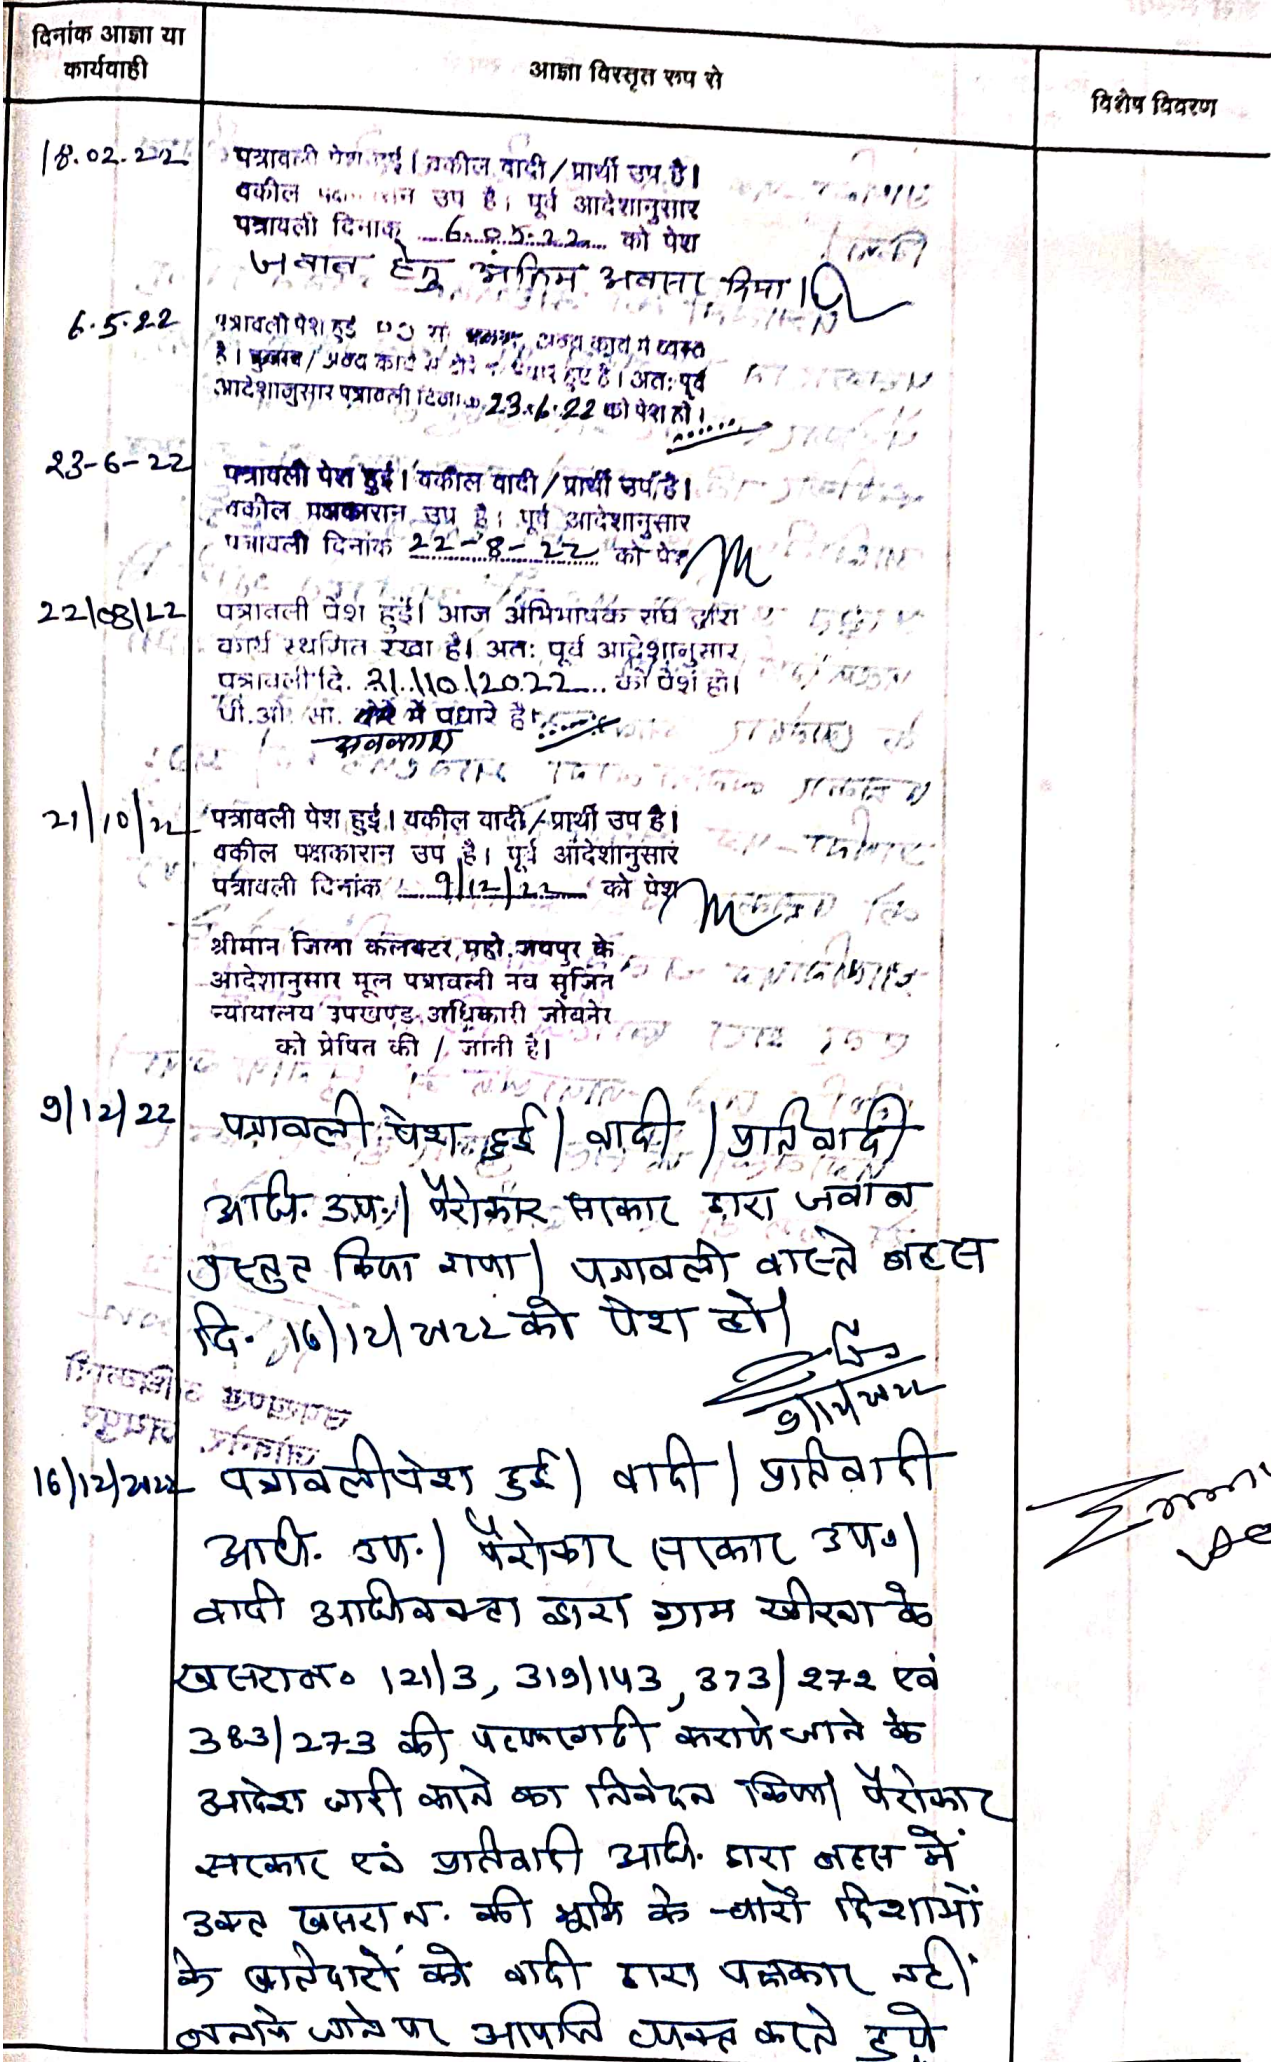 दिनांक आज्ञा या
कार्यवाही
आज्ञा विस्तृत रूप से
विशेष विवरण
18.02.22
पत्रावली पेश हुई। वकील वादी / प्रार्थी उप है।
वकील उप है। पूर्व आदेशानुसार
पत्रावली दिनांक 6.05.22 को पेश
जवाब हेतु अंतिम अवसर दिया।
6.5.22
पत्रावली पेश हुई अन्य कार्य में व्यस्त
है। चुनाव / अन्य कार्य से दौरे हुए है। अतः पूर्व
आदेशानुसार पत्रावली दिनांक 23.6.22 को पेश हो।
23-6-22
पत्रावली पेश हुई। वकील वादी / प्रार्थी उप है।
वकील पक्षकारान उप है। पूर्व आदेशानुसार
पत्रावली दिनांक 22-8-22 को पेश
22/08/22
पत्रावली पेश हुई। आज अभिभाषक संघ द्वारा
कार्य स्थगित रखा है। अतः पूर्व आदेशानुसार
पत्रावली दि. 21/10/2022 को पेश हो।
पी.ओ. सा. दौरे में पधारे है।
अवकाश
21/10/22
पत्रावली पेश हुई। वकील वादी / प्रार्थी उप है।
वकील पक्षकारान उप है। पूर्व आदेशानुसार
पत्रावली दिनांक 9/12/22 को पेश
श्रीमान जिला कलक्टर महो. जयपुर के
आदेशानुसार मूल पत्रावली नव सृजित
न्यायालय उपखण्ड अधिकारी जोबनेर
को प्रेषित की / जाती है।
9/12/22
पत्रावली पेश हुई। वादी / प्रतिवादी
अधि. उप.। पैरोकार सरकार द्वारा जवाब
प्रस्तुत किया गया। पत्रावली वास्ते बहस
दि. 16/12/2022 को पेश हो।
9/12/2022
16/12/2022
पत्रावली पेश हुई। वादी / प्रतिवादी
अधि. उप.। पैरोकार सरकार उप०।
वादी अधिवक्ता द्वारा ग्राम के
खसरा न० 121/3, 319/143, 373/272 एवं
383/273 की पत्थरगढी कराये जाने के
आदेश जारी करने का निवेदन किया। पैरोकार
सरकार एवं प्रतिवादी अधि. द्वारा बहस में
उक्त खसरा न. की भूमि के चारों दिशाओं
के खातेदारों को वादी द्वारा पक्षकार नहीं
बनाये जाने पर आपत्ति व्यक्त करते हुये